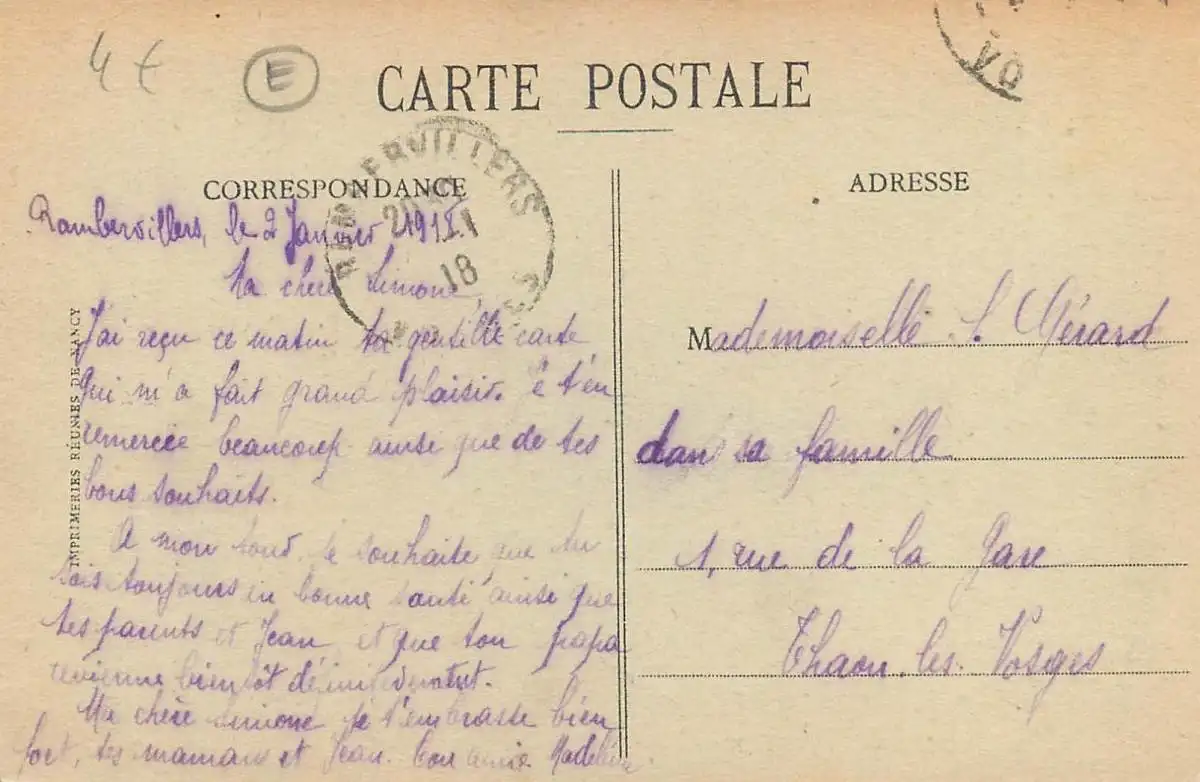 4 €
E
CARTE POSTALE
VO
RAMBERVILLERS
18
CORRESPONDANCE
ADRESSE
Rambervillers, le 2 Janvier 1918
Ma chère Simone,
J'ai reçu ce matin ta gentille carte
qui m'a fait grand plaisir. Je t'en
remercie beaucoup ainsi que de tes
bons souhaits.
A mon tour, je souhaite que tu
sois toujours en bonne santé ainsi que
tes parents et Jean, et que ton papa
revienne bientôt définitivement.
Ma chère Simone je t'embrasse bien
fort, tes mamans et Jean. Ton amie Madeleine
IMPRIMERIES RÉUNIES DE NANCY
Mademoiselle S. Gérard
dans sa famille
1, rue de la Gare
Thaon-les-Vosges